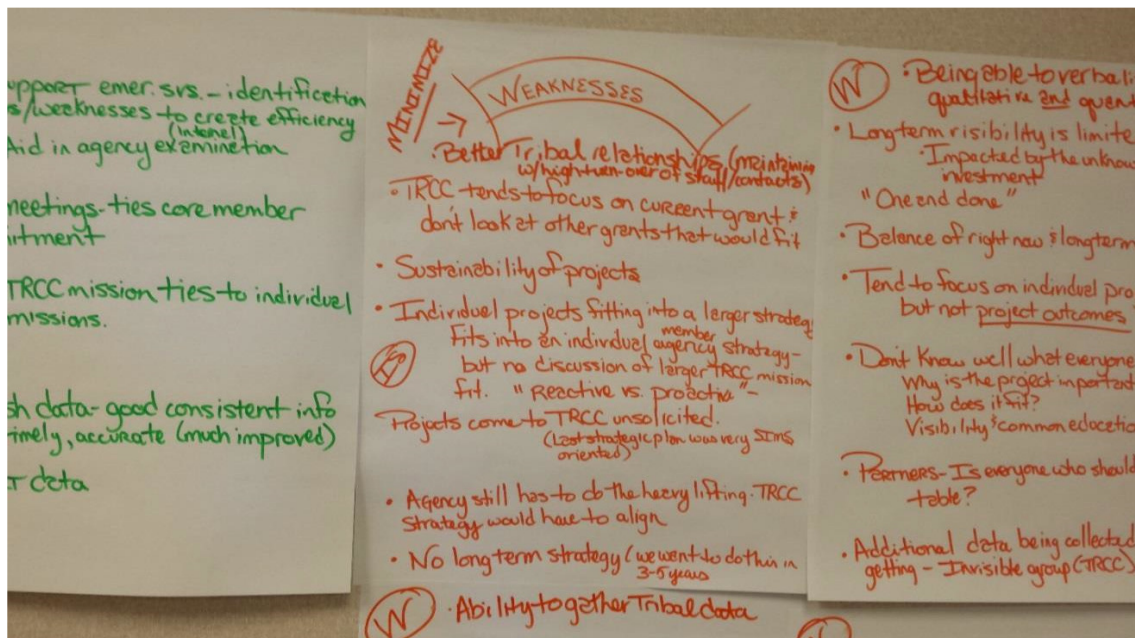 upport emer. svs. - identification
s/weaknesses to create efficiency
(internal)
Aid in agency examination
meetings - ties core member
itment
TRCC mission ties to individual
missions.
sh data - good consistent info
imely, accurate (much improved)
data
MINIMIZE →
WEAKNESSES
• Better Tribal relationships (maintaining
w/high turn-over of staff/contacts)
• TRCC tends to focus on current grant &
don't look at other grants that would fit
• Sustainability of projects
• Individual projects fitting into a larger strategy
Fits into an individual member agency strategy -
but no discussion of larger TRCC mission
fit. "Reactive vs. proactive" -
Projects come to TRCC unsolicited.
(Last strategic plan was very SIMS
oriented)
• Agency still has to do the heavy lifting. TRCC
strategy would have to align
• No long term strategy (we want to do this in
3-5 years
W • Ability to gather Tribal data
W • Being able to verbali
qualitative and quant
• Long term visibility is limite
• Impacted by the unknow
investment
"One and done"
• Balance of right now & long term
• Tend to focus on individual pro
but not project outcomes
• Don't know well what everyone
Why is the project important
How does it fit?
Visibility & common educatio
• Partners - Is everyone who should
table?
• Additional data being collected
getting - Invisible group (TRCC)
W